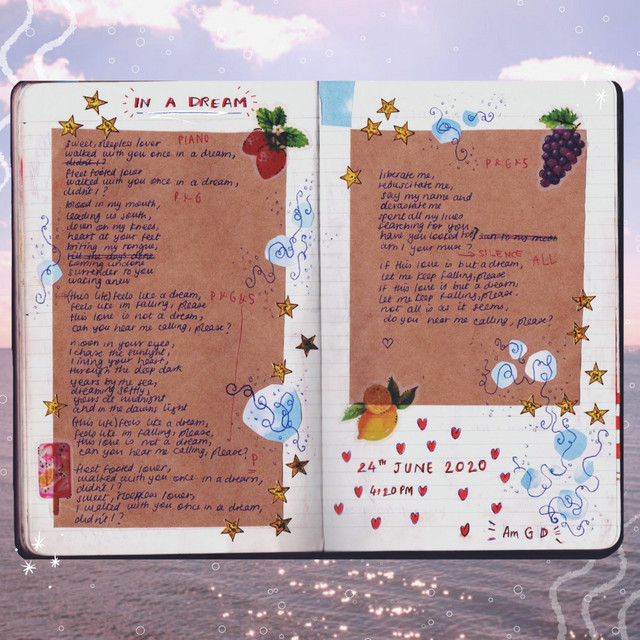 IN A DREAM
sweet, sleepless lover
PIANO
walked with you once in a dream,
didnt I?
fleet footed lover
walked with you once in a dream,
didn't I?
P & G
blood in my mouth,
leading us south,
down on my knees,
heart at your feet
biting my tongue,
till the day's done
coming undone
surrender to you
waking anew
(this life) feels like a dream,
P & G & S
feels like im falling, please
this love is not a dream,
can you hear me calling, please?
moon in your eyes,
I chase the sunlight,
lining your heart,
through the deep dark
years by the sea,
dreaming softly
years at midnight
and in the dawns light
(this life) feels like a dream,
feels like im falling, please,
this love is not a dream,
can you hear me calling, please?
P
fleet footed lover,
walked with you once in a dream,
didn't I?
sweet, sleepless lover,
I walked with you once in a dream,
didn't I?
P & G & S
liberate me,
resuscitate me,
say my name and
devastate me
spent all my lives
searching for you,
have you looked for
am I your muse?
→ SILENCE
ALL
if this love is but a dream,
let me keep falling, please
if this love is but a dream,
let me keep falling, please.
not all is as it seems,
do you hear me calling, please?
24TH JUNE 2020
4:20PM
Am G D